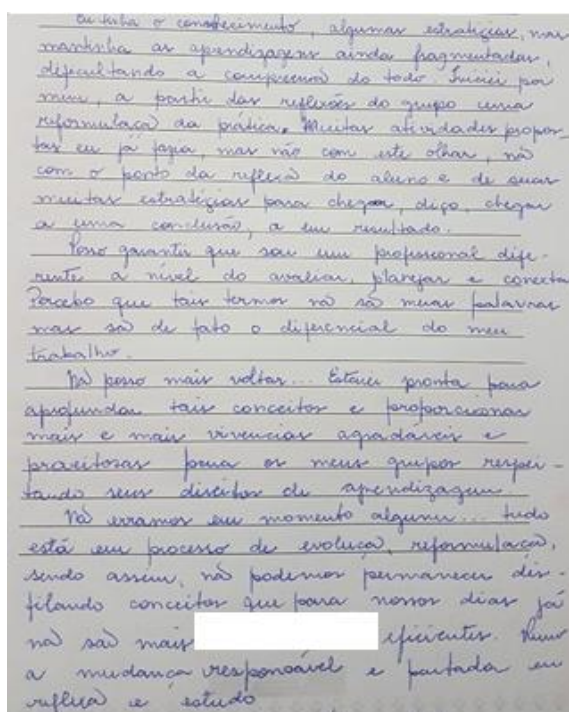 Eu tinha o conhecimento, algumas estratégias, mas
mantinha as aprendizagens ainda fragmentadas,
dificultando a compreensão do todo. Iniciei por
mim, a partir das reflexões do grupo uma
reformulaçã da prática. Muitas atividades propos-
tas eu já fazia, mas não com este olhar, nã
com o ponto da reflexã do aluno e de suas
muitas estratégias para chegar, digo, chegar
a uma conclusão, a um resultado.
Posso garantir que sou um profissional dife-
rente a nível do avaliar, planejar e conectar
Percebo que tais termos nã sã meras palavras
mas sã de fato o diferencial do meu
trabalho.
Nã posso mais voltar... Estarei pronta para
aprofundar tais conceitos e proporcionar
mais e mais vivencias agradáveis e
proveitosas para os meus grupos respei-
tando seus direitos de aprendizagem.
Nã erramos em momento algum... tudo
está em processo de evoluçã, reformulaçã,
sendo assim, nã podemos permanecer des-
filando conceitos que para nossos dias já
nã sã mais eficientes. Rumo
a mudança responsável e pautada em
reflexã e estudo